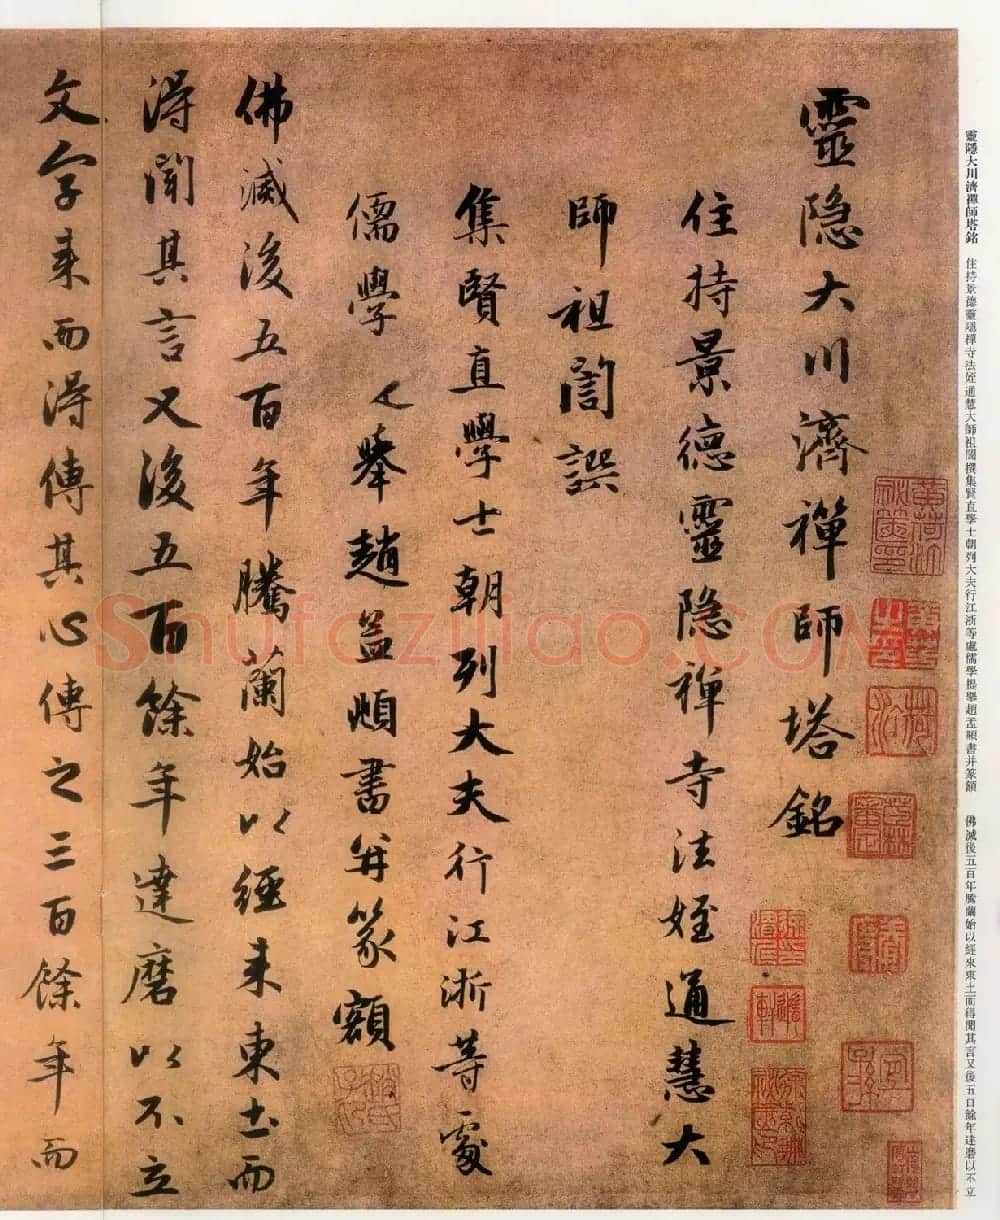 靈隱大川濟禪師塔銘 住持景德靈隱禪寺法姪通慧大師祖誾撰集賢直學士朝列大夫行江浙等處儒學提舉趙孟頫書并篆額 佛滅後五百年騰蘭始以經來東土而得聞其言又後五百餘年達磨以不立
靈隱大川濟禪師塔銘
住持景德靈隱禪寺法姪通慧大
師祖誾譔
集賢直學士朝列大夫行江浙等處
儒學舉趙孟頫書并篆額
佛滅後五百年騰蘭始以經來東土而
得聞其言又後五百餘年達磨以不立
文字來而得傳其心傳之三百餘年而
Shufaziliao.COM